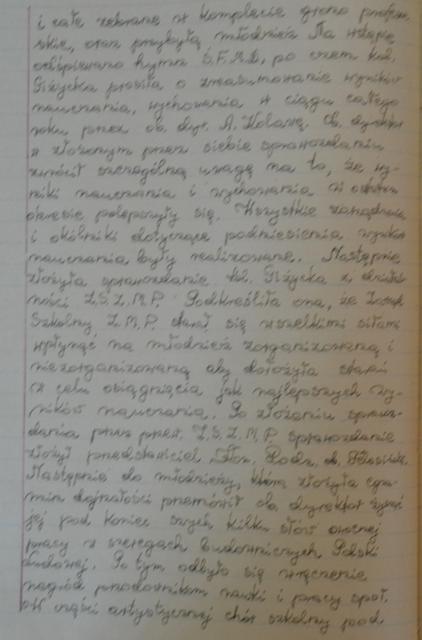 i całe zebrane w komplecie grono profesor-
skie, oraz przybyłą młodzież. Na wstępie
odśpiewano hymn Ś.F.M.D., po czem kol.
Giżycka prosiła o zreasumowanie wyników
nauczania, wychowania w ciągu całego
roku przez ob. dyr. A. Kolasę. Ob. dyrektor
w złożonym przez siebie sprawozdaniu
zwrócił szczególną uwagę na to, że wy-
niki nauczania i wychowania w ostatnim
okresie polepszyły się. Wszystkie zarządzenia
i okólniki dotyczące podniesienia wyników
nauczania były realizowane. Następnie
złożyła sprawozdanie kol. Giżycka z działal-
ności Z.S.Z.M.P. Podkreśliła ona, że Zarząd
Szkolny Z.M.P. starał się wszelkimi siłami
wpłynąć na młodzież zorganizowaną i
niezorganizowaną aby dołożyła starań
w celu osiągnięcia jak najlepszych wy-
ników nauczania. Po złożeniu sprawo-
zdania przez przew. Z.S.Z.M.P. sprawozdanie
złożył przedstawiciel Rodz. ob.
Następnie do młodzieży, która złożyła egza-
min dojrzałości przemówił ob. dyrektor życząc
jej pod koniec swych kilku słów owocnej
pracy w szeregach budowniczych Polski
Ludowej. Po tym odbyło się wręczenie
nagród przodownikom nauki i pracy społ.
W części artystycznej chór szkolny pod